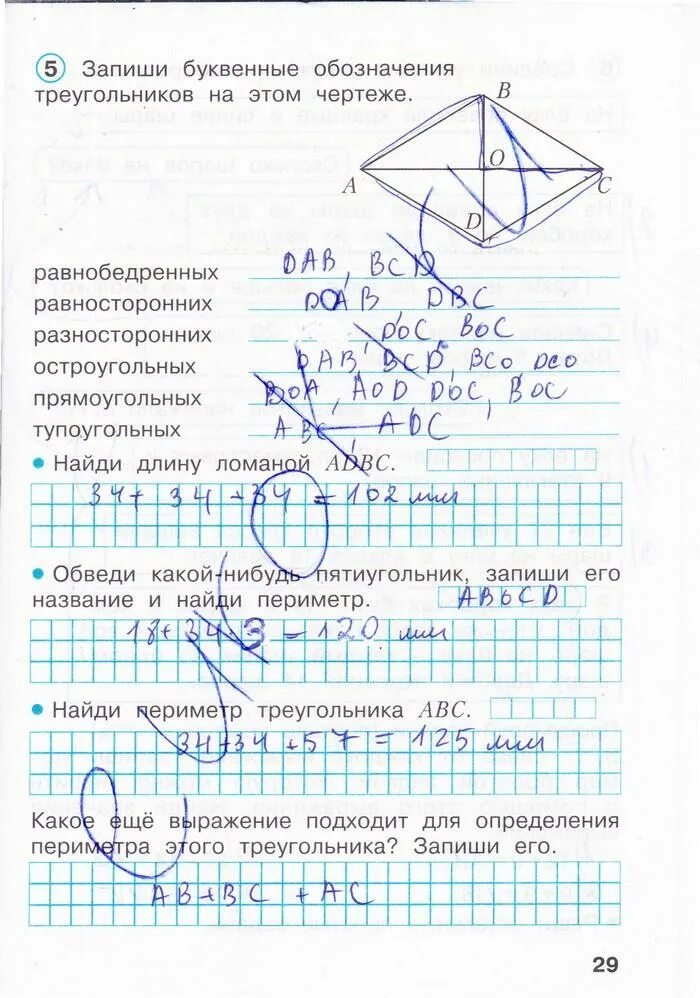 5 Запиши буквенные обозначения
треугольников на этом чертеже.
B
O
A
C
D
равнобедренных DAB, BCD
равносторонних DAB DBC
разносторонних DOC BOC
остроугольных DAB, BCD, BCO DCO
прямоугольных BOA, AOD DOC, BOC
тупоугольных ABC ADC
• Найди длину ломаной ADBC.
34+ 34 +34 = 102 мм
• Обведи какой-нибудь пятиугольник, запиши его
название и найди периметр. ABOCD
18+34·3 = 120 мм
• Найди периметр треугольника ABC.
34+34+57=125 мм
Какое ещё выражение подходит для определения
периметра этого треугольника? Запиши его.
AB+BC +AC
29